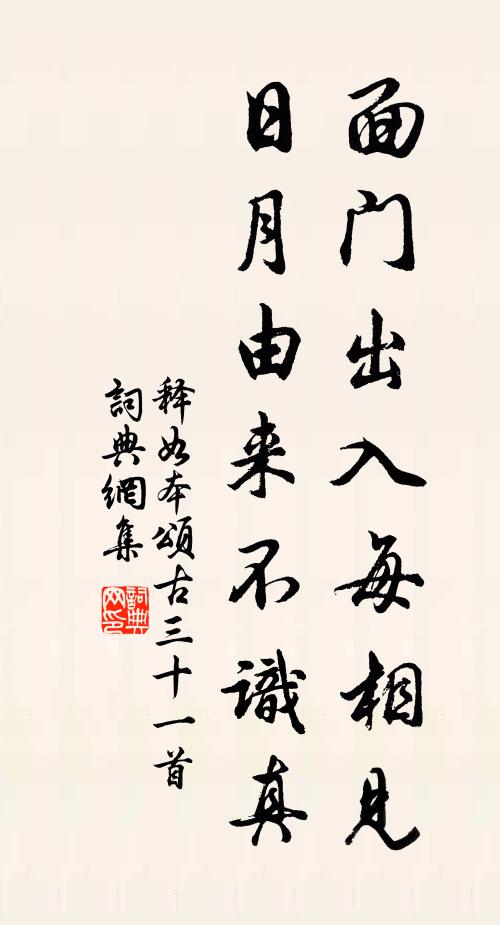 面门出入每相見
日月由来不識真
释如本頌古三十一首
詞典網集
詞典网印